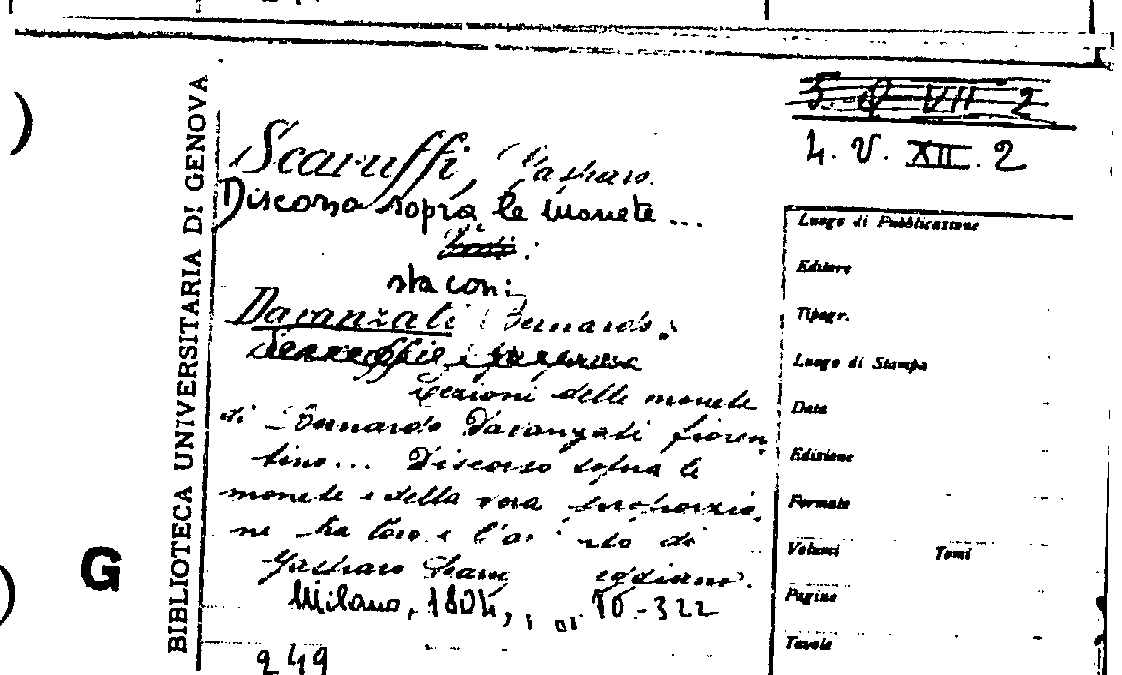 5. Q. VII 2
4. V. XII. 2
Scaruffi, Gasparo.
Discorso sopra le monete ...
sta con:
Davanzati Bernardo.
Lezioni delle monete
di Bernardo Davanzati fioren
tino... Discorso sopra le
monete e della vera proporzio
ne tra loro e l'ar di
Gasparo eggiano.
Milano, 1804, 10-322
249
BIBLIOTECA UNIVERSITARIA DI GENOVA
G
Luogo di Pubblicazione
Editore
Tipogr.
Luogo di Stampa
Data
Edizione
Formato
Volumi Tomi
Pagine
Tavole